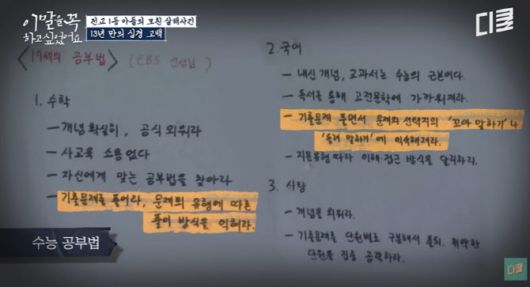 이 말을 꼭
하고 싶었어요
전교 1등 아들의 모친 살해사건
13년 만의 심경 고백
디클
<19세의 공부법> (EBS 선생님)
1. 수학
- 개념 확실히, 공식 외워라
- 사교육 소용없다
- 자신에게 맞는 공부법을 찾아라
- 기출문제를 풀어라, 문제의 유형에 따른
풀이 방식을 익혀라.
2. 국어
- 내신 개념, 교과서는 수능의 근본이다.
- 독서를 통해 고전문학에 가까워져라.
- 기출문제 풀면서 문제의 선택지의 '꼬아 말하기'나
'돌려 말하기'에 익숙해져라.
- 지문유형 따라 이해·접근 방식을 달리하라.
3. 사탐
- 개념을 외워라.
- 기출문제를 단원별로 구분해서 풀되, 취약한
단원을 집중 공략하라.
수능 공부법
디클